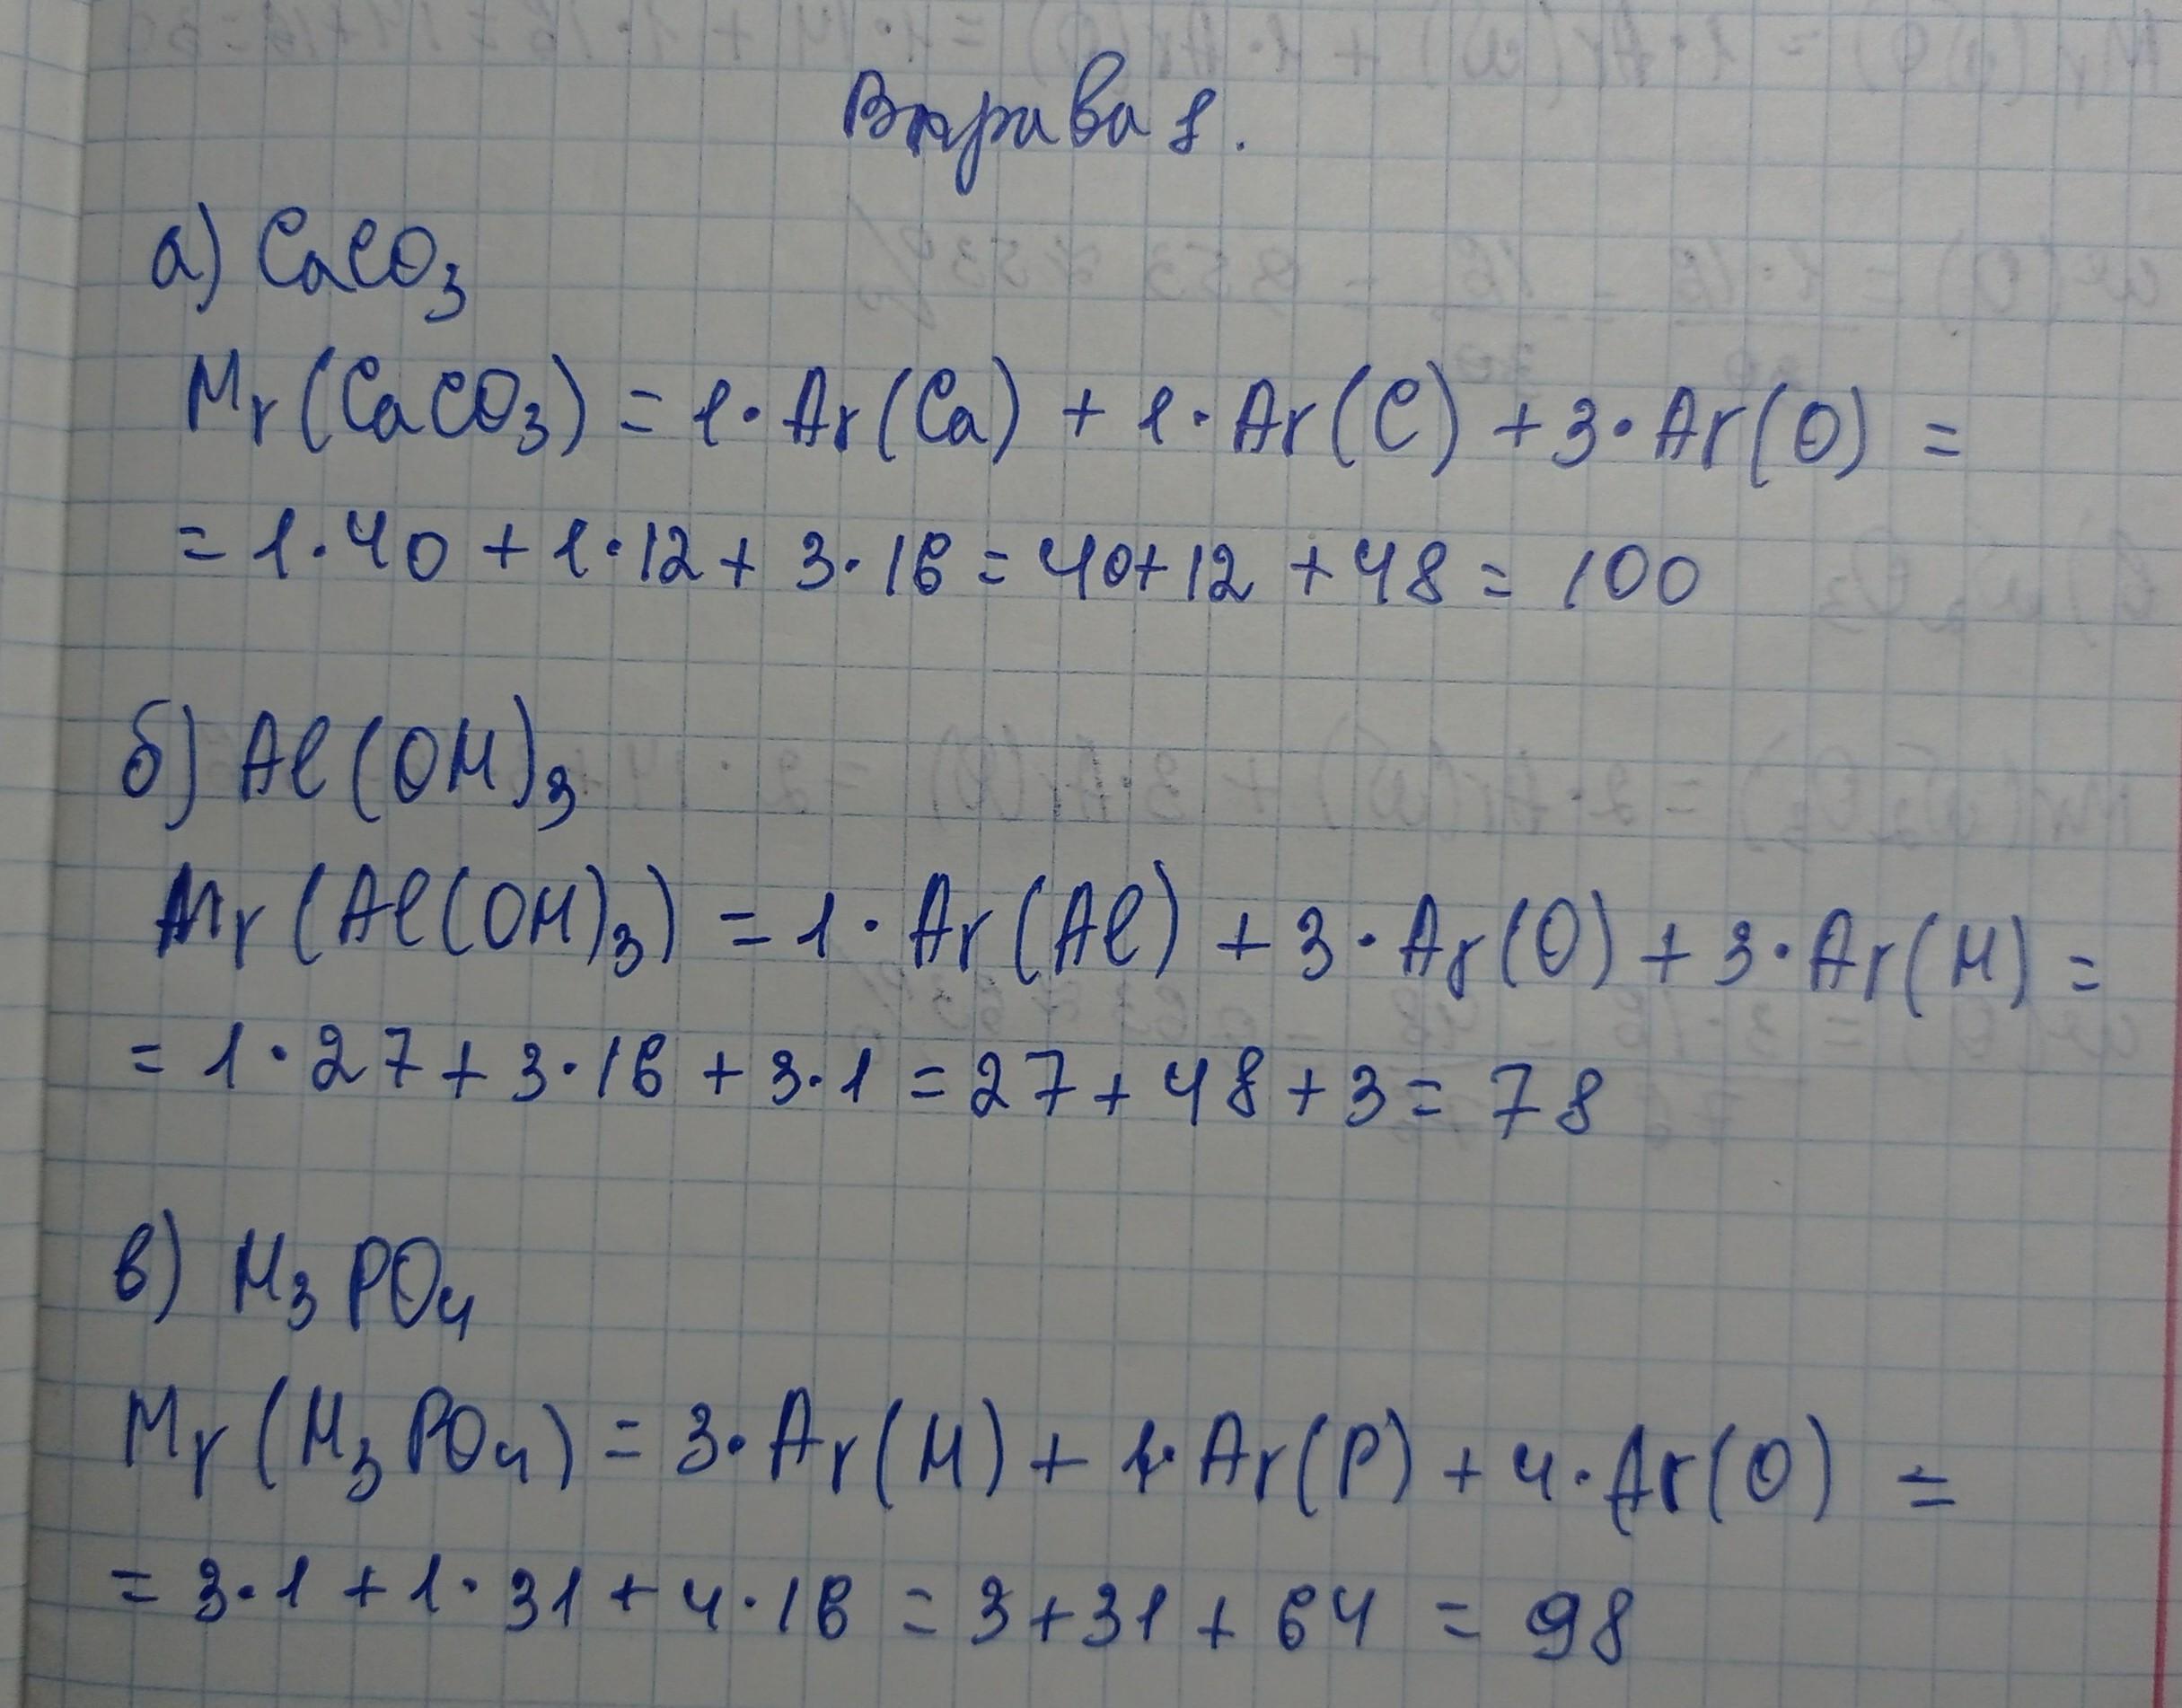 Вправа 1.
а) CaCO₃
Mr(CaCO₃) = 1·Ar(Ca) + 1·Ar(C) + 3·Ar(O) =
= 1·40 + 1·12 + 3·16 = 40+12 + 48 = 100
б) Al(OH)₃
Mr(Al(OH)₃) = 1·Ar(Al) + 3·Ar(O) + 3·Ar(H) =
= 1·27 + 3·16 + 3·1 = 27 + 48 + 3 = 78
в) H₃PO₄
Mr(H₃PO₄) = 3·Ar(H) + 1·Ar(P) + 4·Ar(O) =
= 3·1 + 1·31 + 4·16 = 3+31 + 64 = 98